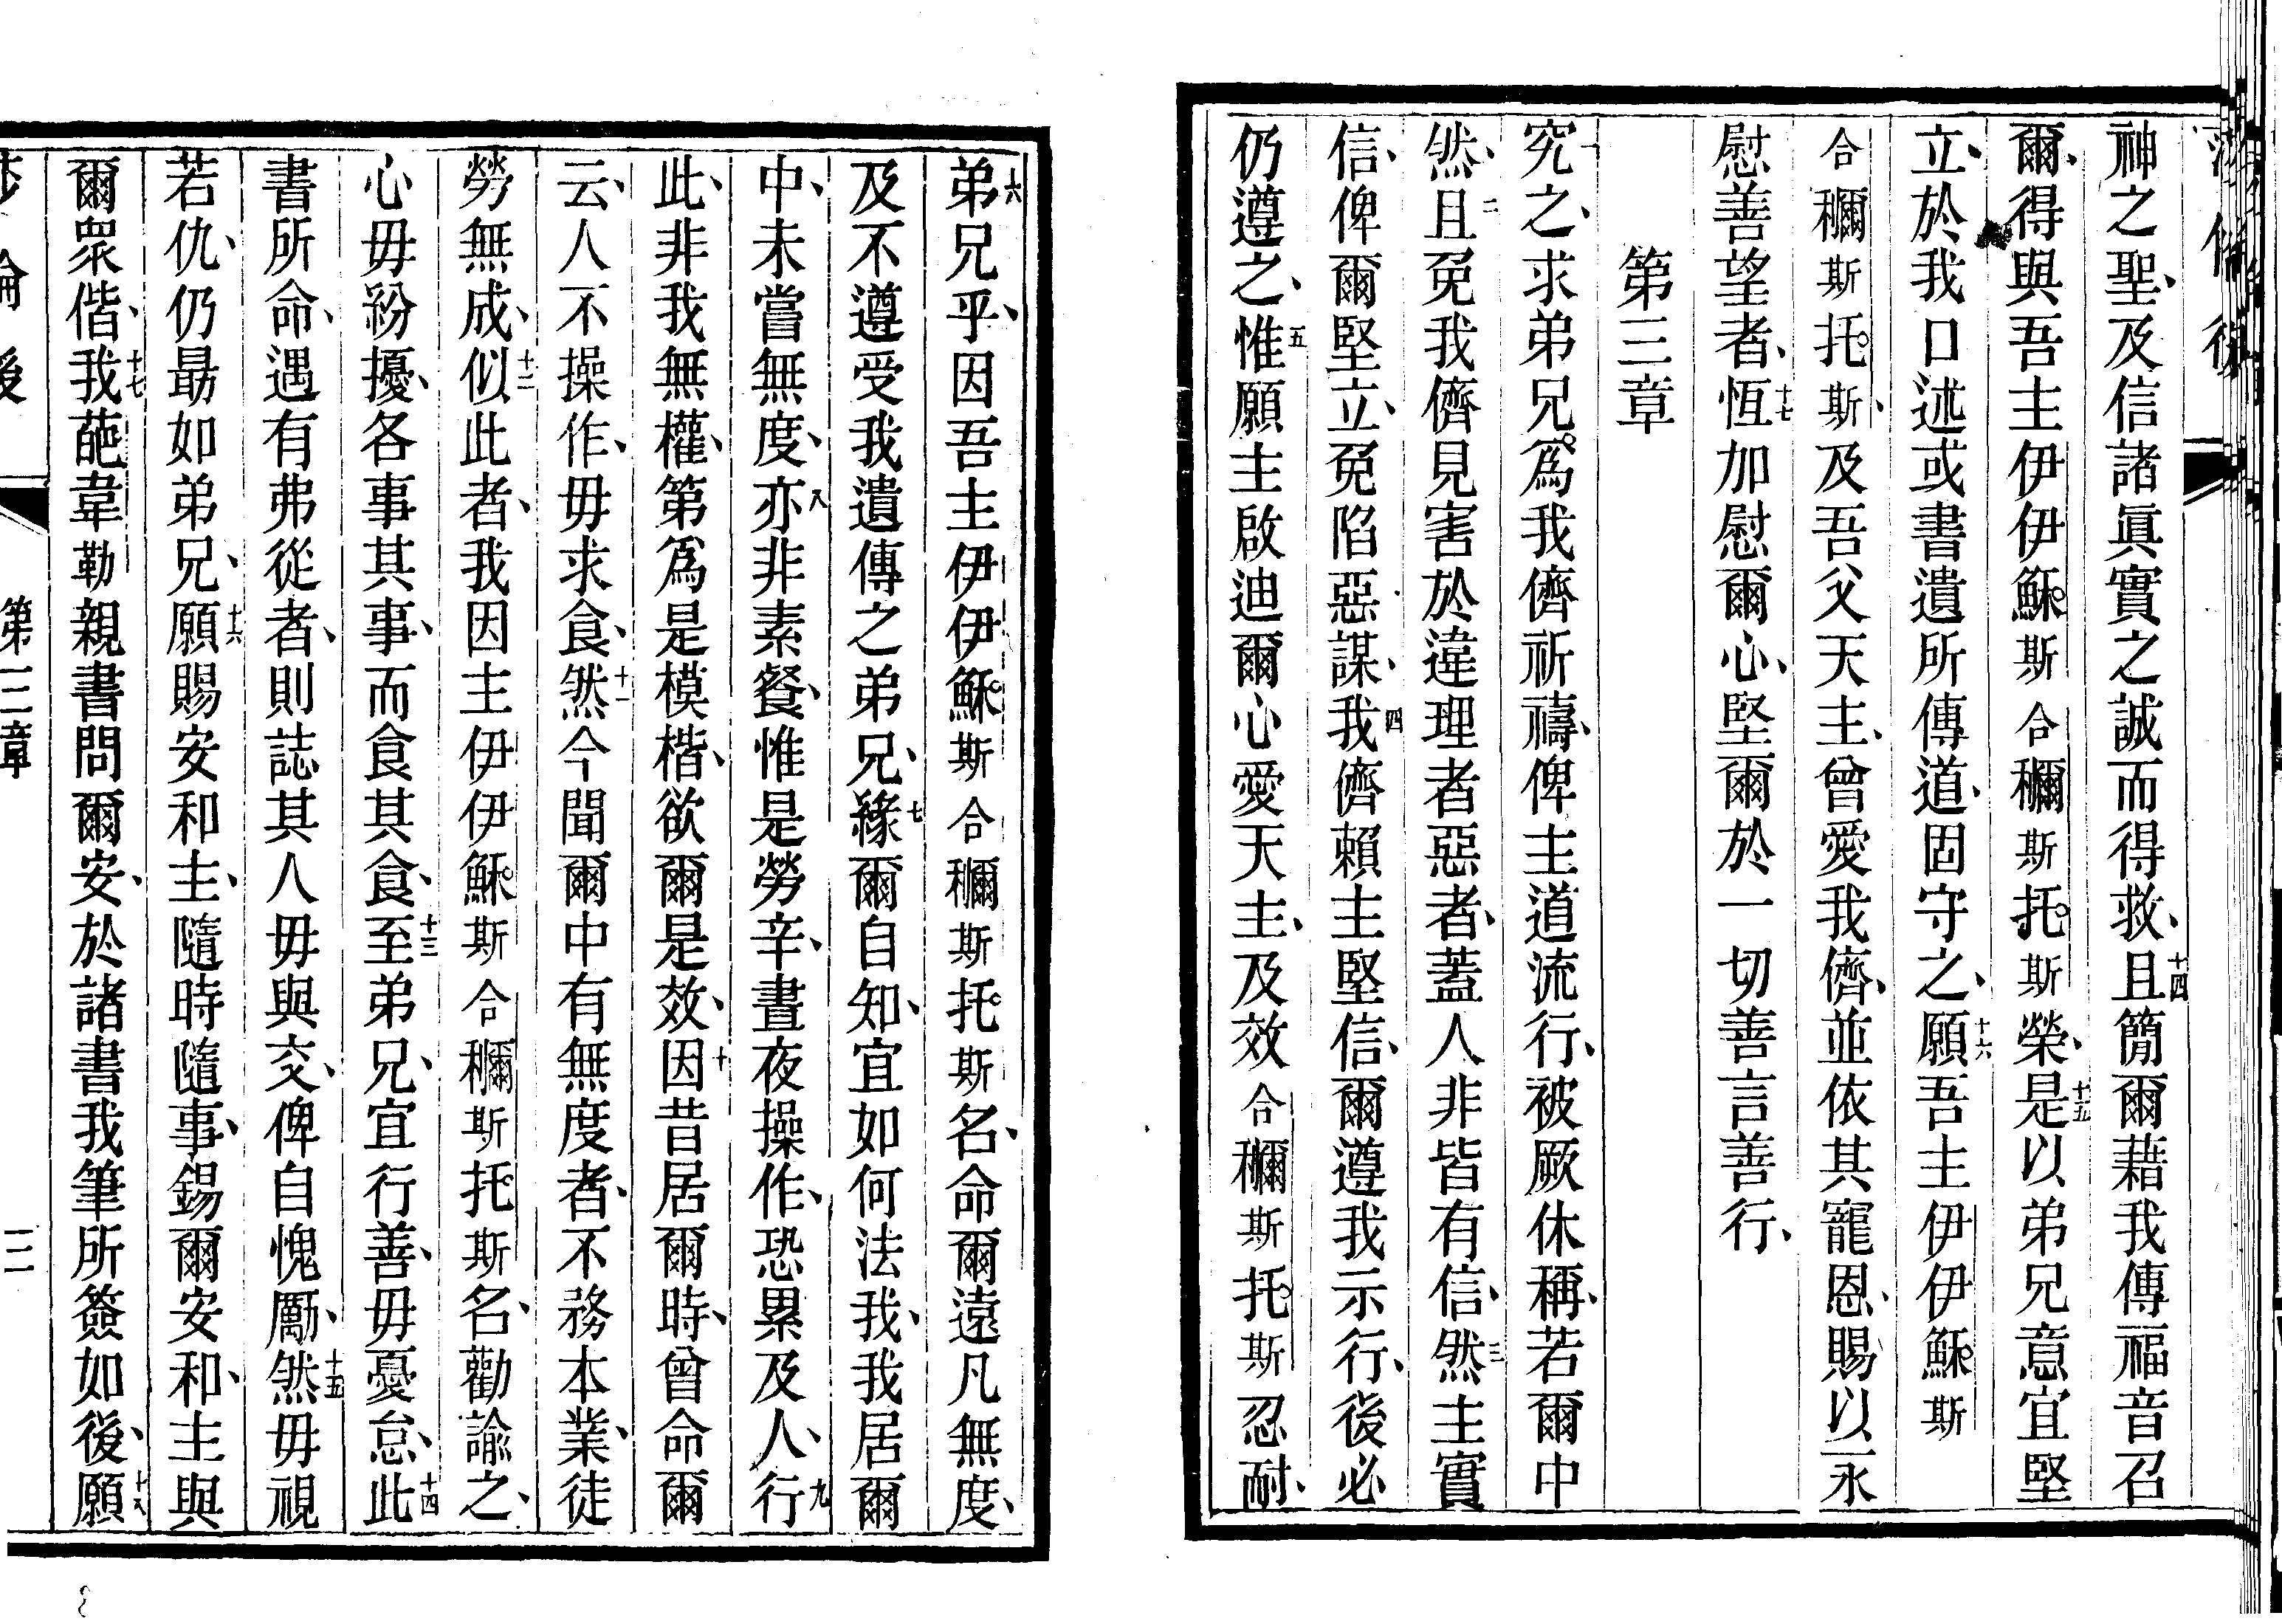 神之聖、及信諸眞實之誠而得救、十四且簡爾藉我傳福音召
爾、得與吾主伊伊穌斯合穪斯托斯榮、十五是以弟兄意宜堅
立、於我口述或書遺所傳道、固守之、十六願吾主伊伊穌斯
合穪斯托斯、及吾父天主、曾愛我儕、並依其寵恩、賜以永
慰善望者、十七恆加慰爾心、堅爾於一切善言善行、
第三章
一究之、求弟兄爲我儕祈禱、俾主道流行、被厥休稱、若爾中
然、二且免我儕見害於違理者惡者、蓋人非皆有信、三然主實
信、俾爾堅立、免陷惡謀、四我儕賴主堅信、爾遵我示行、後必
仍遵之、五惟願主啟迪爾心愛天主、及效合穪斯托斯忍耐、
六弟兄乎、因吾主伊伊穌斯合穪斯托斯名、命爾遠凡無度、
及不遵受我遺傳之弟兄、七緣爾自知、宜如何法我、我居爾
中、未嘗無度、八亦非素餐、惟是勞辛、晝夜操作、恐累及人、九行
此、非我無權、第爲是模楷、欲爾是效、十因昔居爾時、曾命爾
云、人不操作、毋求食、十一然今聞爾中有無度者、不務本業、徒
勞無成、十二似此者、我因主伊伊穌斯合穪斯托斯名、勸諭之、
心毋紛擾、各事其事、而食其食、十三至弟兄、宜行善、毋憂怠、十四此
書所命、遇有弗從者、則誌其人毋與交、俾自愧勵、十五然毋視
若仇、仍最如弟兄、十六願賜安和主、隨時隨事、錫爾安和、主與
爾眾偕、十七我葩韋勒親書問爾安、於諸書我筆所簽如後、十八願
後
第三章
三